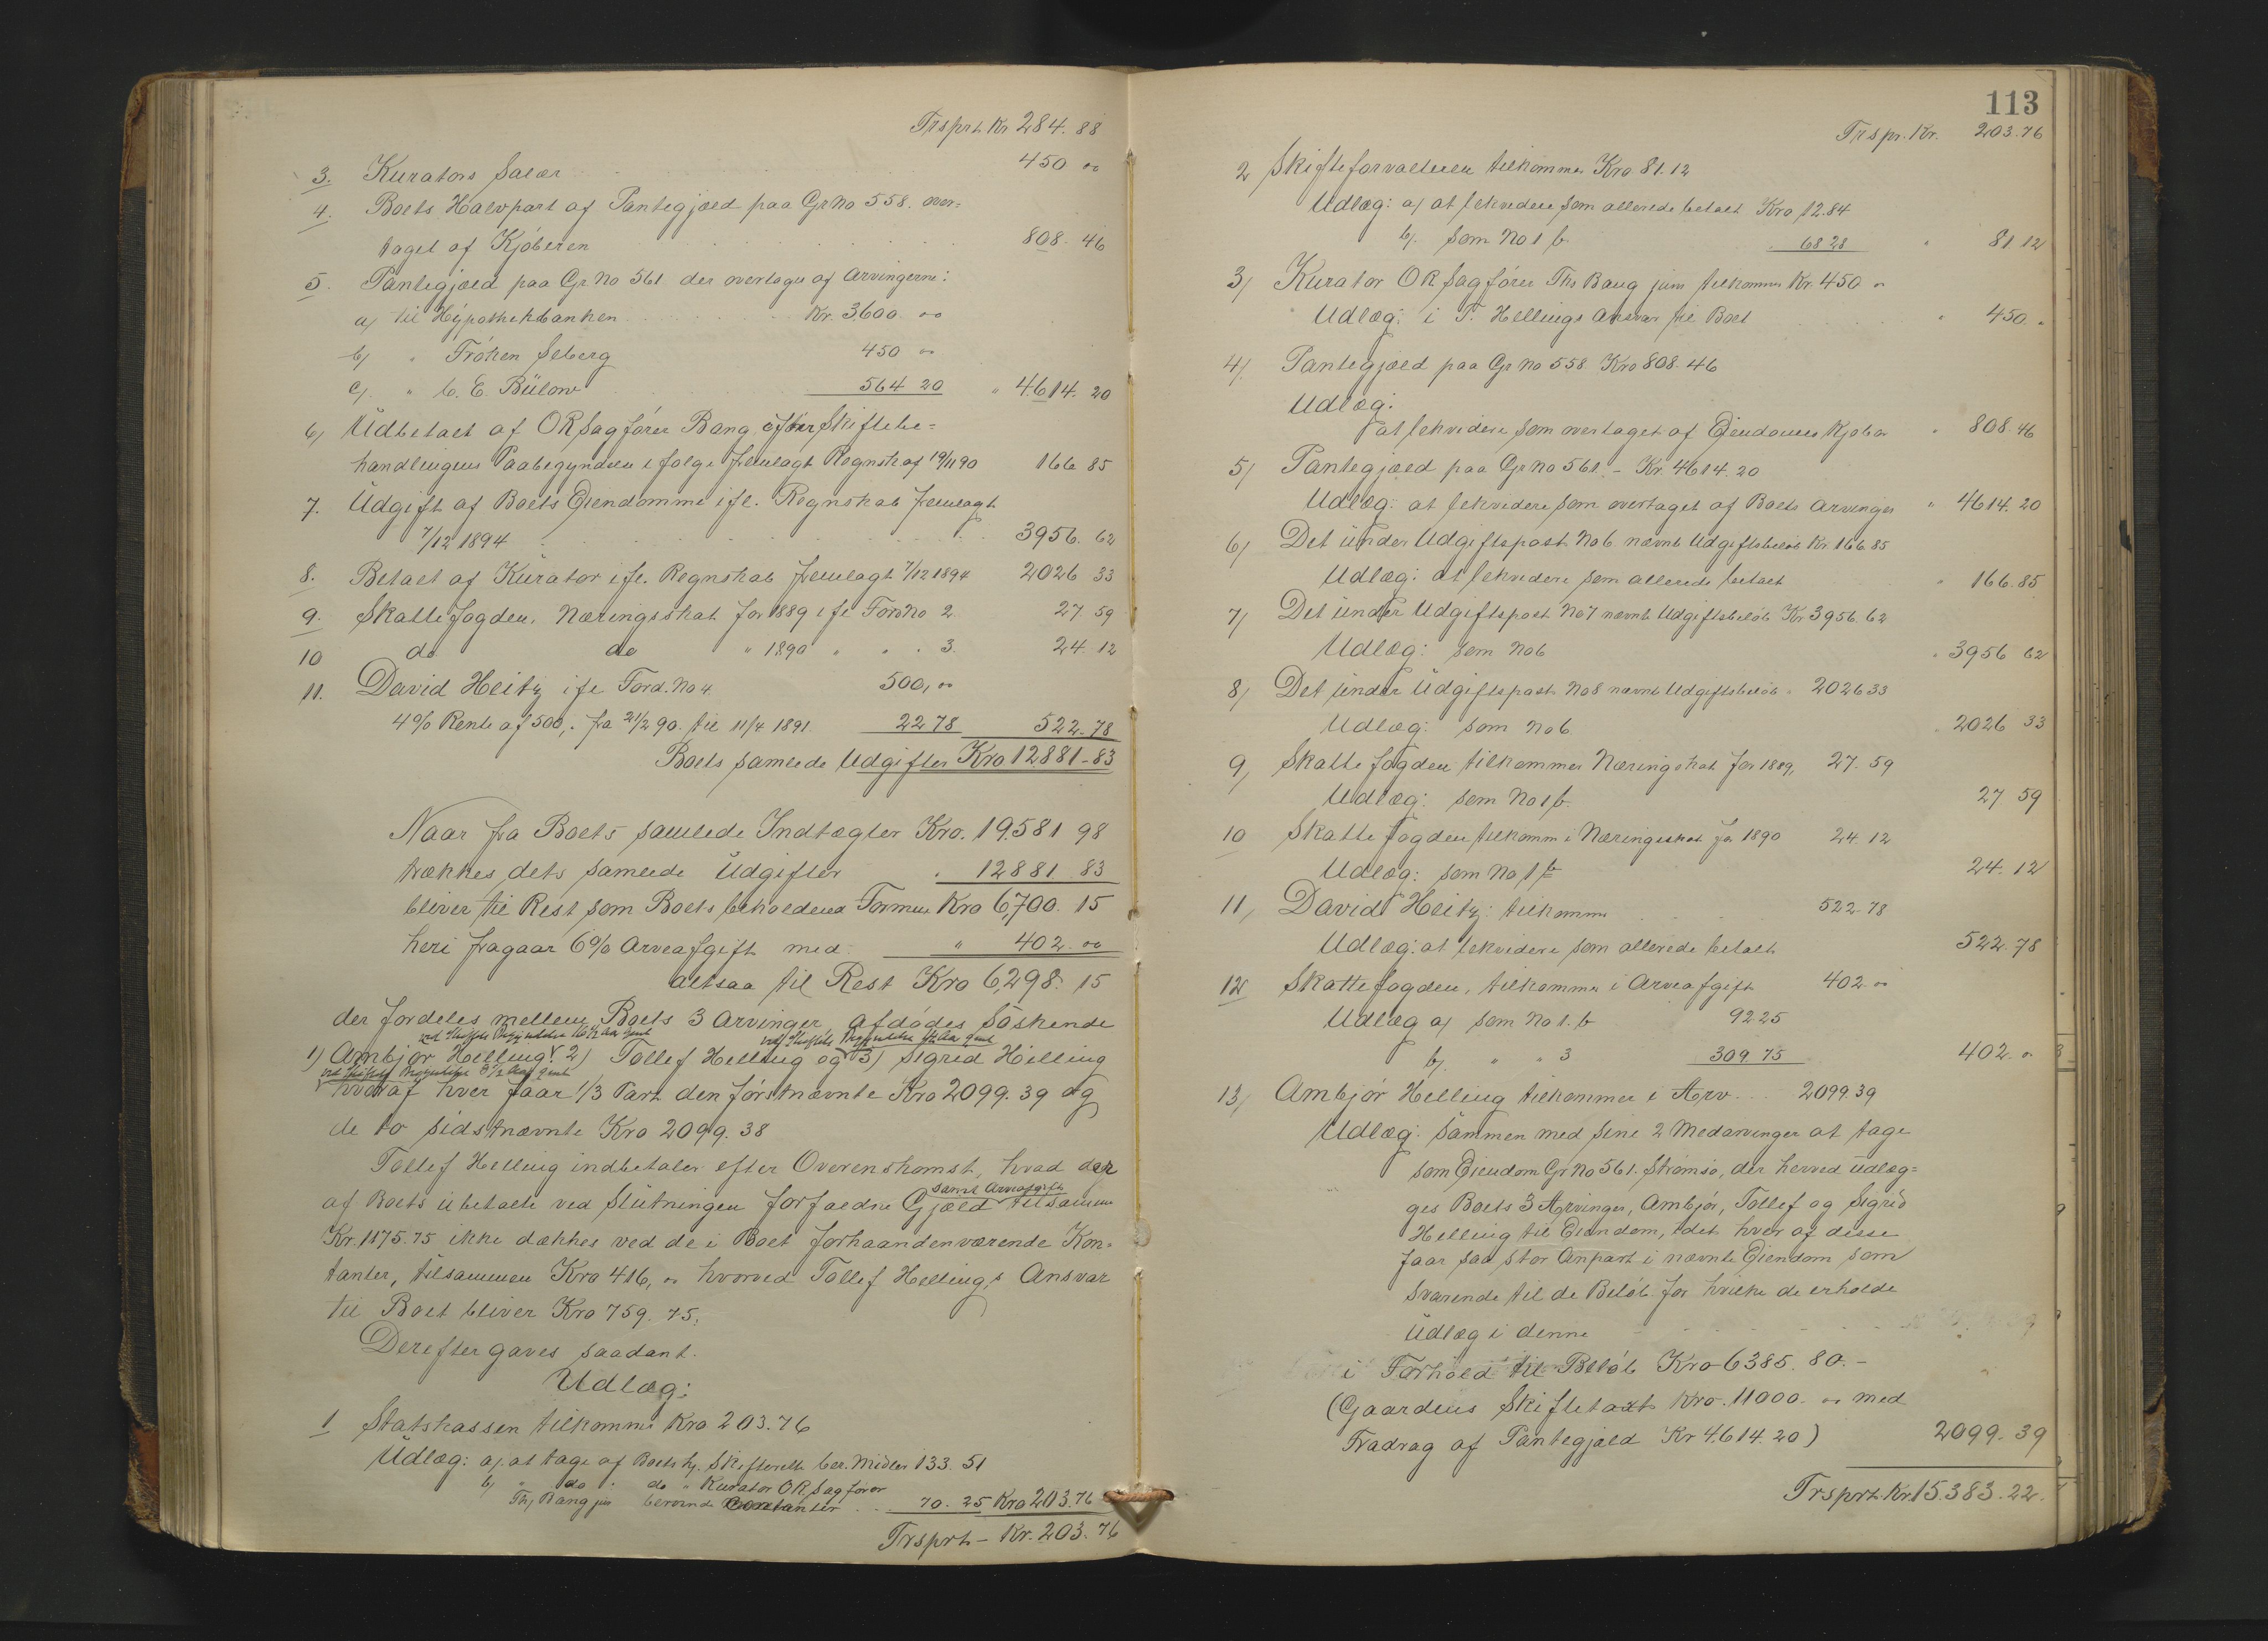 Trsprt Kr 284. 88
3. Kurators Salær 450 00
4. Boets Halvpart af Pantegjæld paa Gr No 558. over=
taget af Kjøberen 808. 46
5. Pantegjæld paa Gr No 561 der overtages af Arvingerne:
a) til Hypothekbanken Kr. 3600. 00
b) " Frøken Seberg 450 00
c) " C. E. Bülow 564 20 " 4614. 20
6) Udbetalt af ORSagfører Bang efter Skiftebe=
handlingens Paabegyndelse ifølge fremlagt Regnsk af 19/11 90 166 85
7. Udgift af Boets Eiendomme ifl. Regnskab fremlagt
7/12 1894 3956. 62
8. Betalt af Kurator ifl. Regnskab fremlagt 7/12 1894 2026 33
9. Skattefogden, Næringsskat for 1889 ifl Ford No 2 27. 59
10 do do " 1890 " " . 3. 24. 12
11. David Heitz ifl Ford. No 4 500, 00
4% Rente af 500,- fra 21/2 90. til 11/4 1891. 22 78 522-78
Boets samlede Udgifter Kro 12881-83
Naar fra Boets samlede Indtægter Kro. 19.581 98
trækkes dets samlede Udgifter " 12881. 83
bliver til Rest som Boets beholdne Formue Kro 6,700. 15
heri fragaar 6% Arveafgift med " 402. 00
altsaa til Rest Kro 6,298. 15
der fordeles mellem Boets 3 Arvinger afdødes Søskende
ved Skiftets Begyndelse 16 1/2 Aar gml ved Skiftets Begyndelse Aar gml
1) Ambjør Helling 2) Tollef Helling og 3) Sigrid Helling
ved Skiftets Begyndelse 8 1/2 Aar gml
hvoraf hver faar 1/3 Part den førstnævnte Kro 2099. 39 og
de to sidstnævnte Kro 2099. 38
Tollef Helling indbetaler efter Overenskomst, hvad der
samt Arveafgift
af Boets ubetalte ved Slutningen forfaldne Gjæld tilsammen
Kr. 1175. 75 ikke dækkes ved de i Boet forhaandenværende Kon-
tanter, tilsammen Kro 416, 00 hvorved Tollef Hellings Ansvar
til Boet bliver Kro 759. 75.
Derefter gaves saadant
Udlæg:
1 Statskassen tilkommer Kro 203.76
Udlæg: a). at tage af Boets hj. Skifteretten ber. Midler 133. 51
b) " do . do " Kurator ORSagfører
Ths Bang jun beroende Contanter 70. 25 Kro 203.76
Trsprt - Kr. 203. 76
113
Trspr. Kr. 203.76
2 Skifteforvalteren tilkommer Kro 81.12
Udlæg: a) at likvidere som allerede betalt Kro 12.84
b). som No 1 b. 68 28 " 81 12
3) Kurator ORSagfører Ths Bang jun tilkommer Kr. 450 "
Udlæg: i T. Hellings Ansvar til Boet " 450. "
4). Pantegjæld paa Gr No 558 Kro 808. 46
Udlæg:
at likvidere som overtaget af Eiendommens Kjøber " 808. 46
5) Pantegjæld paa Gr No 561.- Kr. 4614. 20
Udlæg: at likvidere som overtaget af Boets Arvinger " 4614. 20
6) Det under Udgiftspost No 6 nævnte Udgiftsbeløb Kr. 166 85
Udlæg: at likvidere som allerede betalt " 166. 85
7) Det under Udgiftspost No 7 nævnte Udgiftsbeløb Kr 3956. 62
Udlæg: som No 6 " 3956 62
8) Det under Udgiftspost No 8 nævnte Udgiftsbeløb " 2026 33
Udlæg: som No 6 " 2026 33
9) Skattefogden tilkommer Næringsskat for 1889, 27. 59
Udlæg: som No 1 b. 27 59
10 Skattefogden tilkomm i Næringsskat for 1890 24 12
Udlæg: som No 1 b 24. 12
11) David Heitz: tilkommer 522-78
Udlæg: at likvidere som allerede betalt 522. 78
12 Skattefogden, tilkommer i Arveafgift 402. 00
Udlæg a) som No 1. b 92.25
b). " " 3 309. 75 402. "
13) Ambjør Helling tilkommer i Arv 2099.39
Udlæg: sammen med sine 2 Medarvinger at tage
som Eiendom Gr No 561. Strømsø, der herved udlæg=
ges Boets 3 Arvinger, Ambjør, Tollef og Sigrid
Helling til Eiendom, idet hver af disse
faar saa stor Anpart i nævnte Eiendom som
svarende til de Beløb for hvilke de erholde
Udlæg i denne
i Forhold til Beløb Kro 6385. 80.-
(Gaardens Skiftetaxt Kro. 11000. 00 med
Fradrag af Pantegjæld Kr 4.614. 20) 2099. 39
Trsprt. Kr. 15.383. 22.